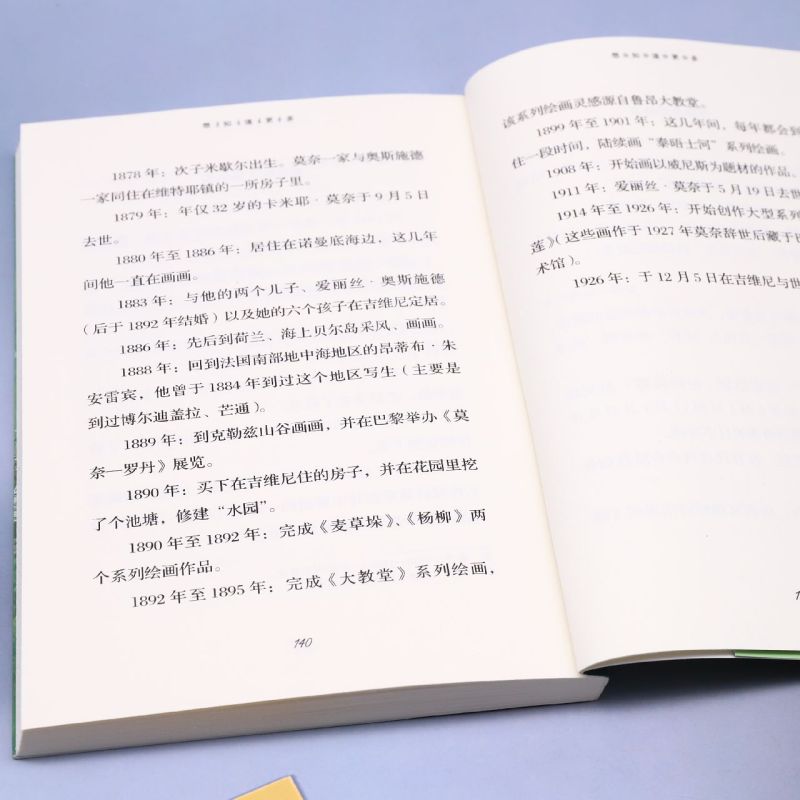 想 知 道 更 多
1878 年：次子米歇尔出生。莫奈一家与奥斯施德
一家同住在维特耶镇的一所房子里。
1879 年：年仅 32 岁的卡米耶·莫奈于 9 月 5 日
去世。
1880 年至 1886 年：居住在诺曼底海边，这几年
间他一直在画画。
1883 年：与他的两个儿子、爱丽丝·奥斯施德
（后于 1892 年结婚）以及她的六个孩子在吉维尼定居。
1886 年：先后到荷兰、海上贝尔岛采风、画画。
1888 年：回到法国南部地中海地区的昂蒂布·朱
安雷宾，他曾于 1884 年到过这个地区写生（主要是
到过博尔迪盖拉、芒通）。
1889 年：到克勒兹山谷画画，并在巴黎举办《莫
奈—罗丹》展览。
1890 年：买下在吉维尼住的房子，并在花园里挖
了个池塘，修建“水园”。
1890 年至 1892 年：完成《麦草垛》、《杨柳》两
个系列绘画作品。
1892 年至 1895 年：完成《大教堂》系列绘画，
140
想 知 道 更 多
该系列绘画灵感源自鲁昂大教堂。
1899 年至 1901 年：这几年间，每年都会到
住一段时间，陆续画“泰晤士河”系列绘画。
1908 年：开始画以威尼斯为题材的作品。
1911 年：爱丽丝·莫奈于 5 月 19 日去世
1914 年至 1926 年：开始创作大型系列
莲》（这些画作于 1927 年莫奈辞世后藏于
术馆）。
1926 年：于 12 月 5 日在吉维尼与世